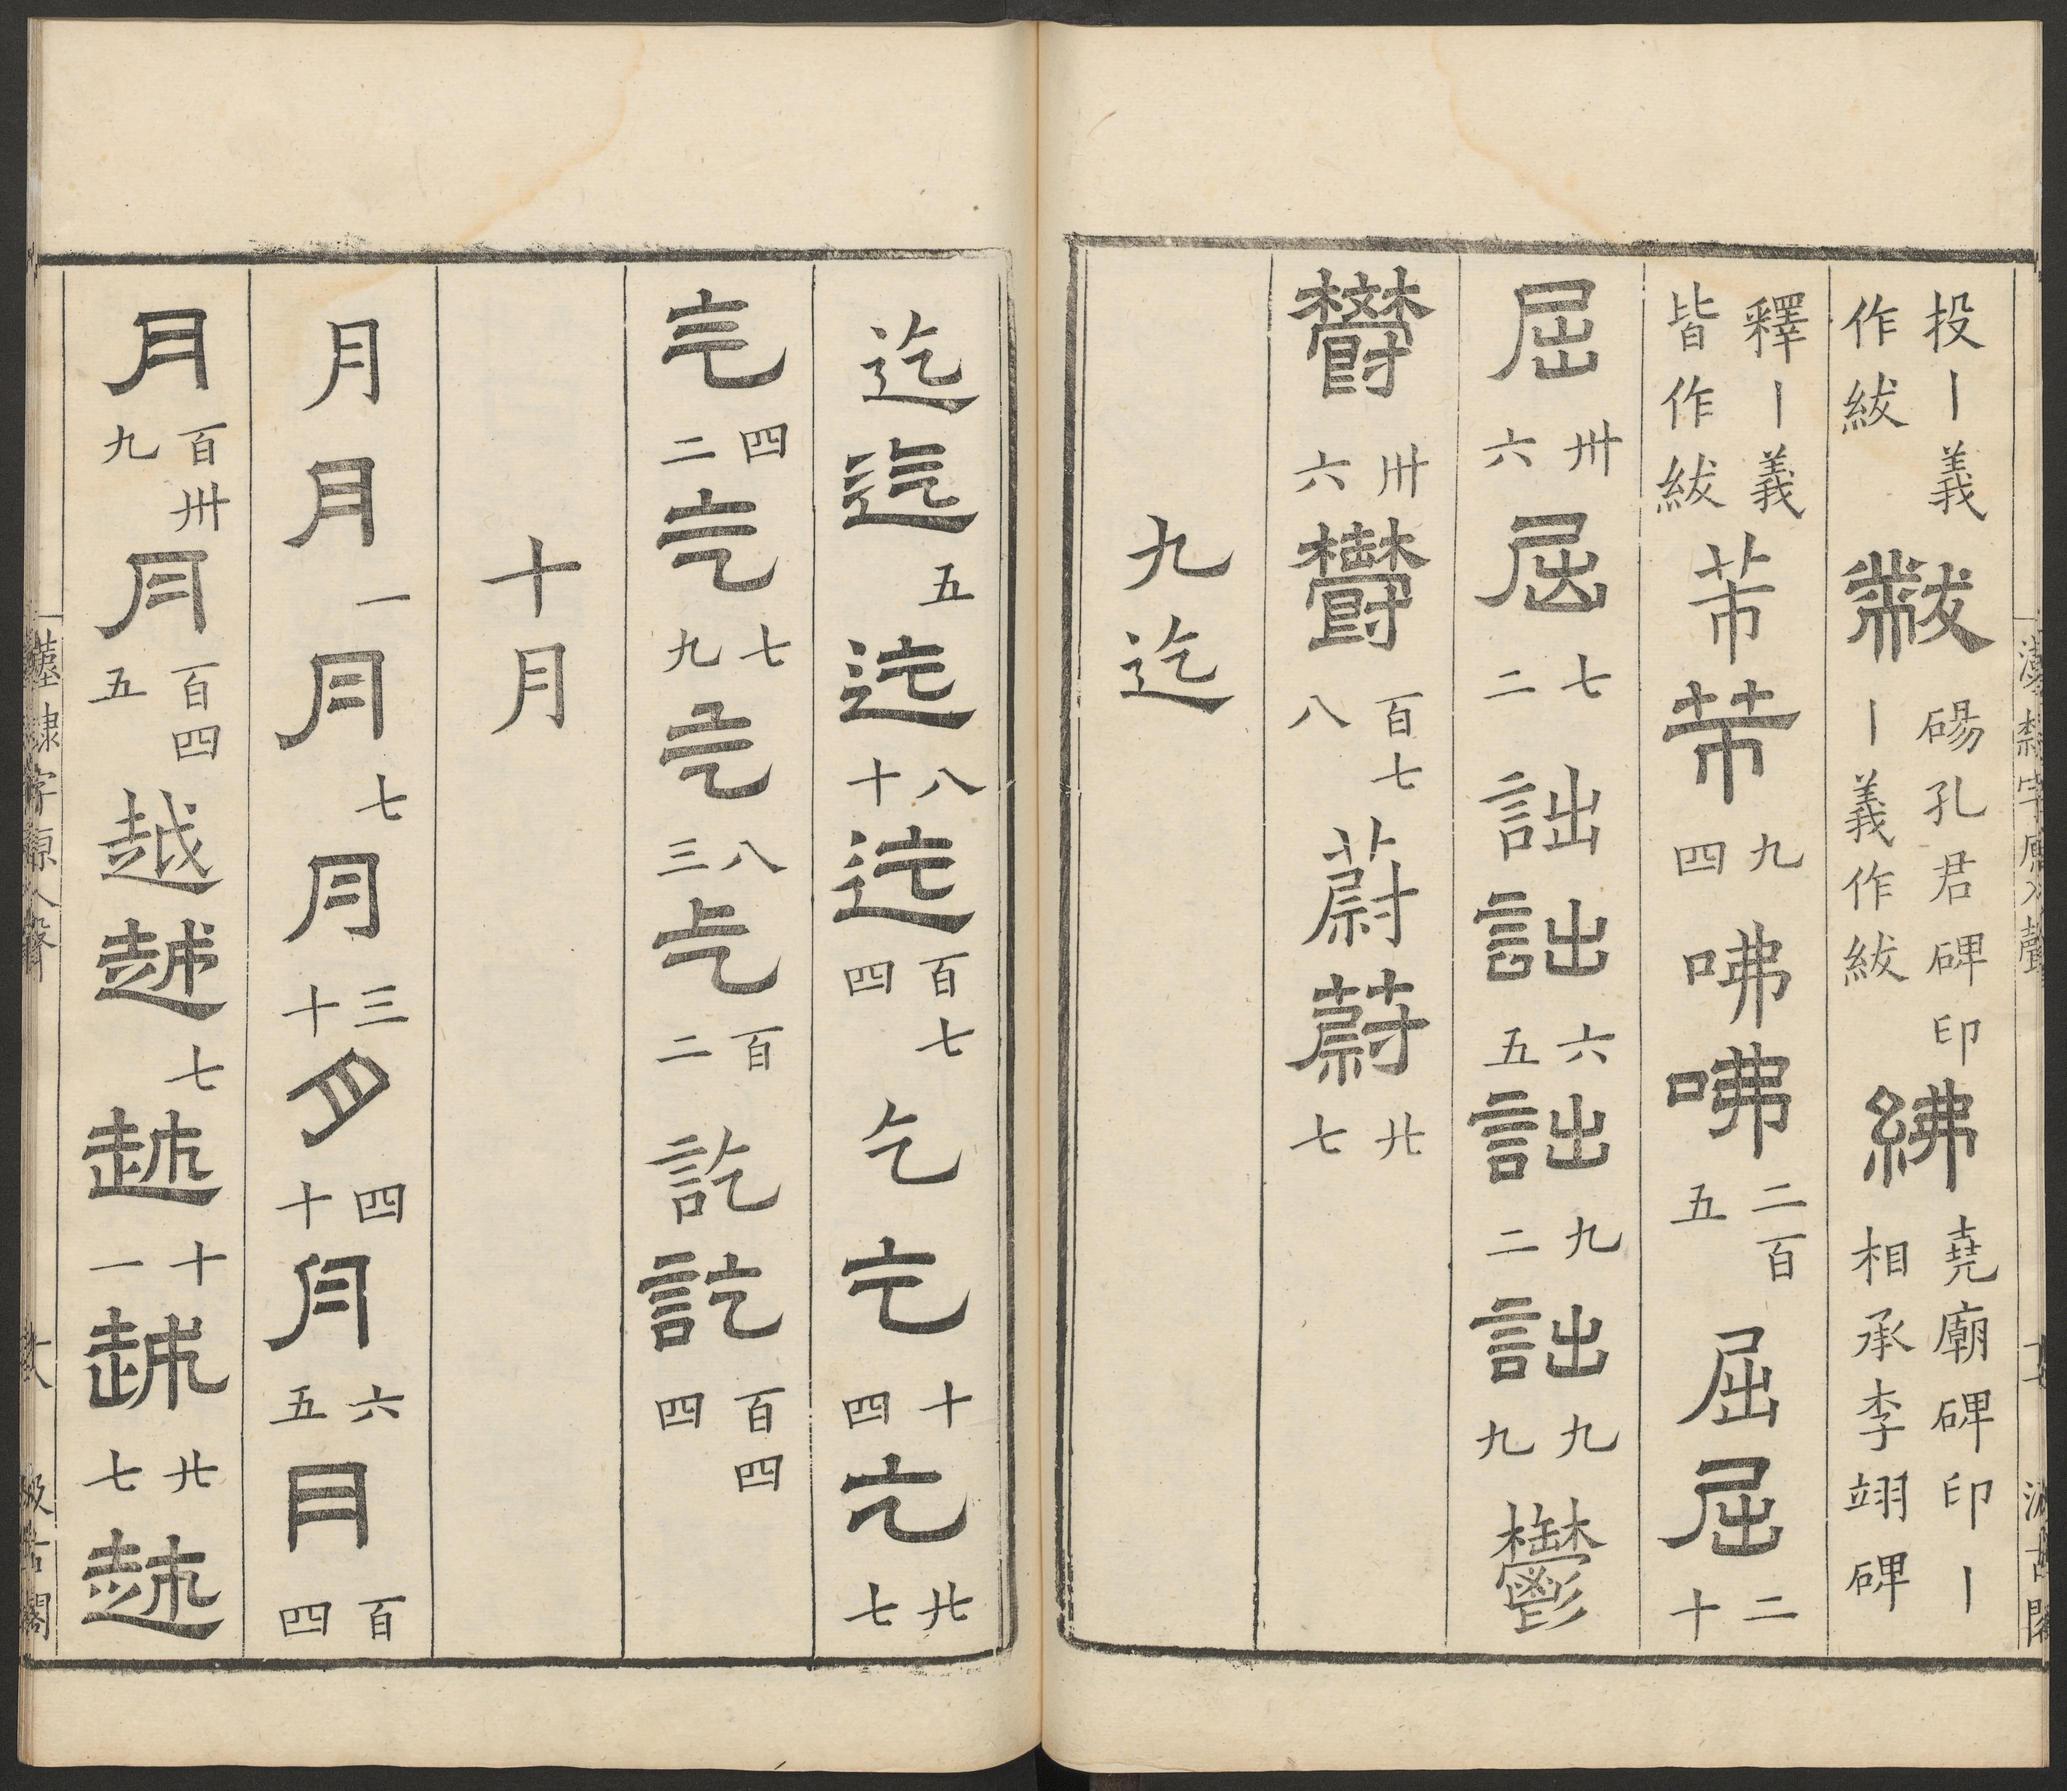 漢隸字源入聲 十七 汲古閣
投丨義作紱黻碭孔君碑印丨義作紱紼堯廟碑印丨相承李翊碑
釋丨義皆作紱芾芾九四咈咈二百五屈屈二十
屈卅六屈七二詘詘六五詘九二詘九九鬱
欝卅六欝百七八蔚蔚廿七
九迄
迄迄五迄八十迄百七四乞乞十四乞廿七
乞四二乞七九乞八三乞百二訖訖百四四
十月
月月一月七月三十月四十月六五月百四
月百卅九月百四五越越七越十一越廿七越
漢隸字源入聲 十八 汲古閣